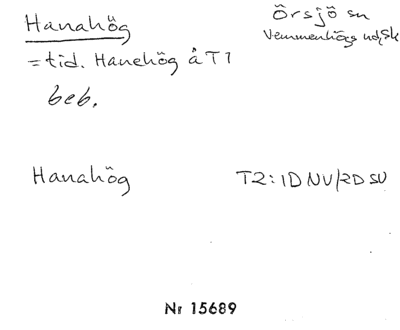 Hanahög
Örsjö sn
Vemmenhögs hd, Sk
= tid. Hanehög å T1
beb.
Hanahög
T2: 1D NV/2D SV
Nr 15689